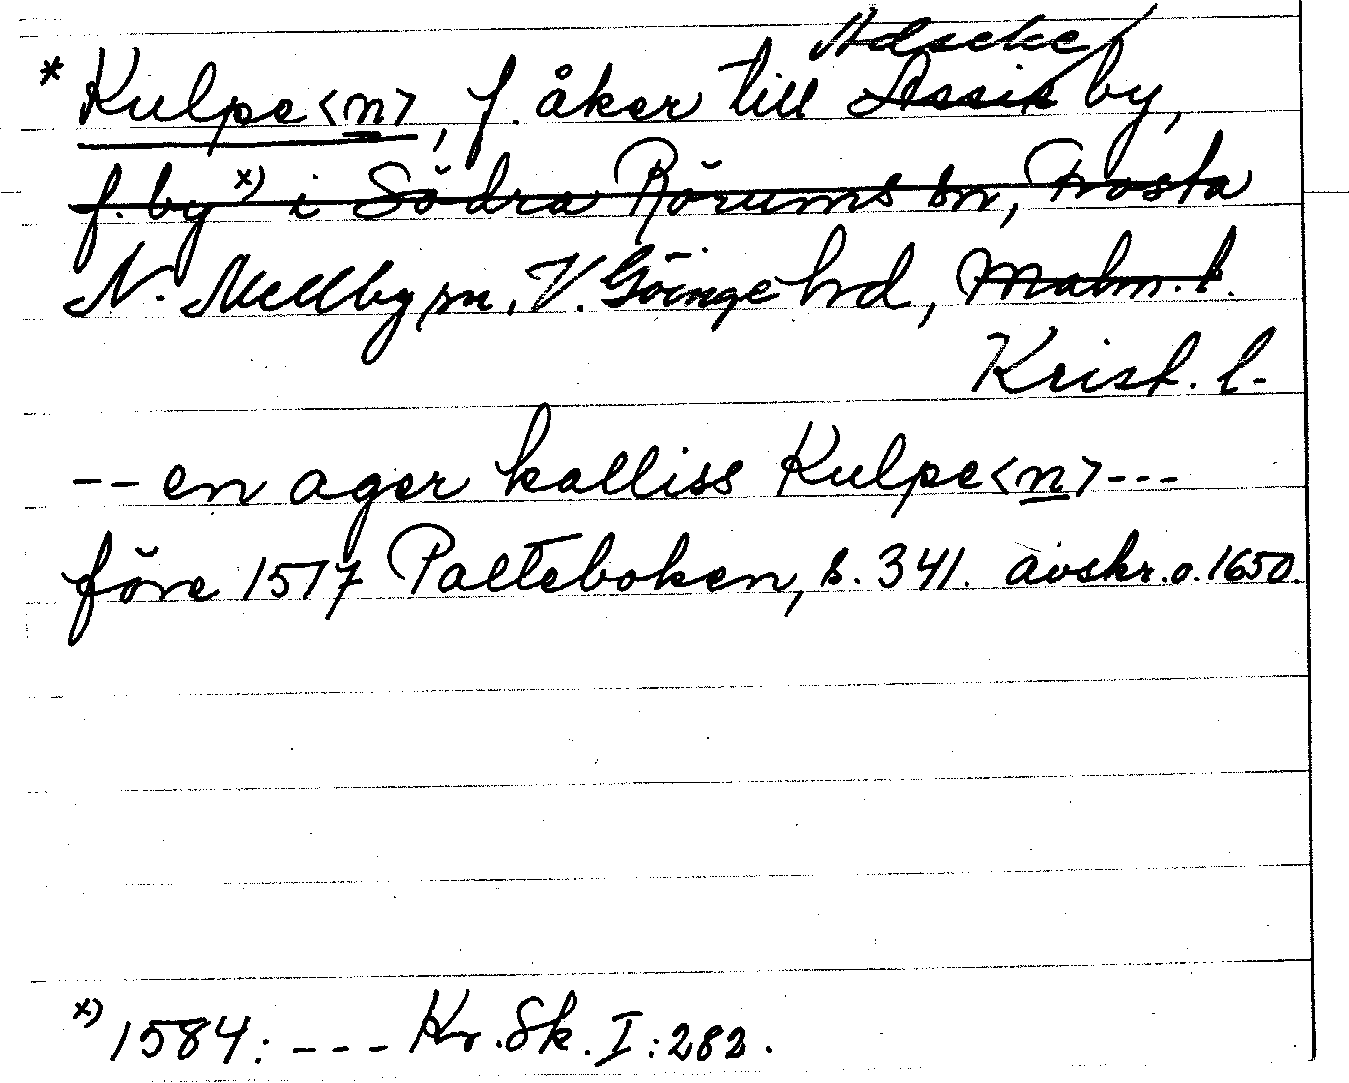 Adseke
* Kulpe<n>, f. åker till Assis by,
f. by x) i Södra Rörums sn, Frosta
N. Mellby sn, V. Göinge hd, Malm. l.
Krist. l.
-- en ager kalliss Kulpe<n> ---
före 1517 Palteboken, s. 341. avskr. o. 1650.
x) 1584: --- Kr. Sk. I: 282.